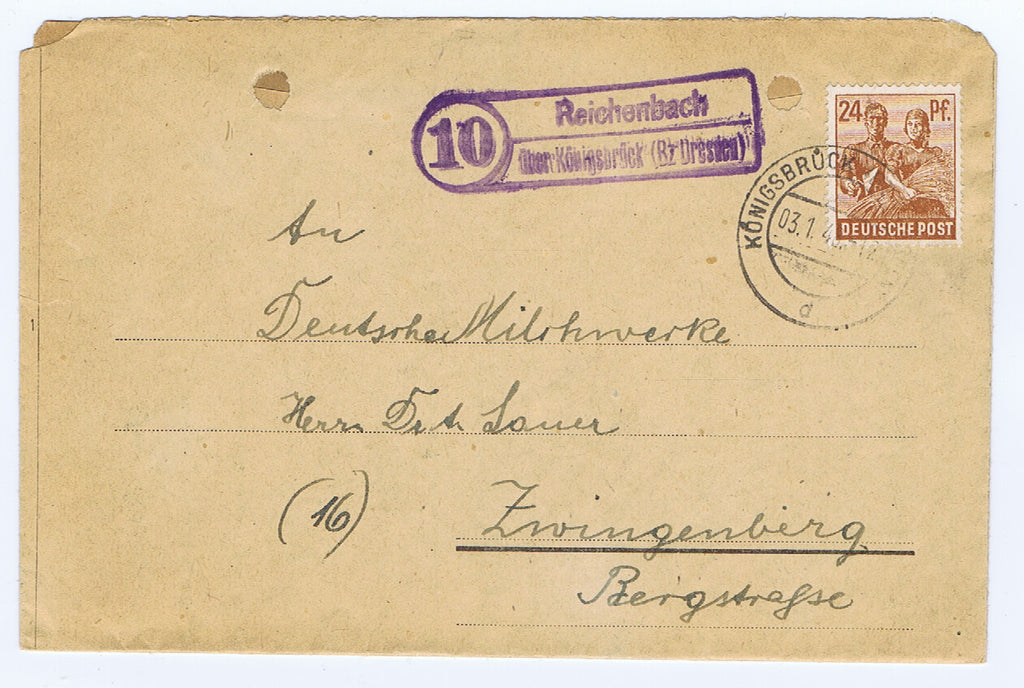 10
Reichenbach
über Königsbrück (Bz Dresden)
24 Pf.
DEUTSCHE POST
KÖNIGSBRÜCK
03.1.4
d
An
Deutsche Milchwerke
Herrn Sauer
(16) Zwingenberg
Bergstraße
1